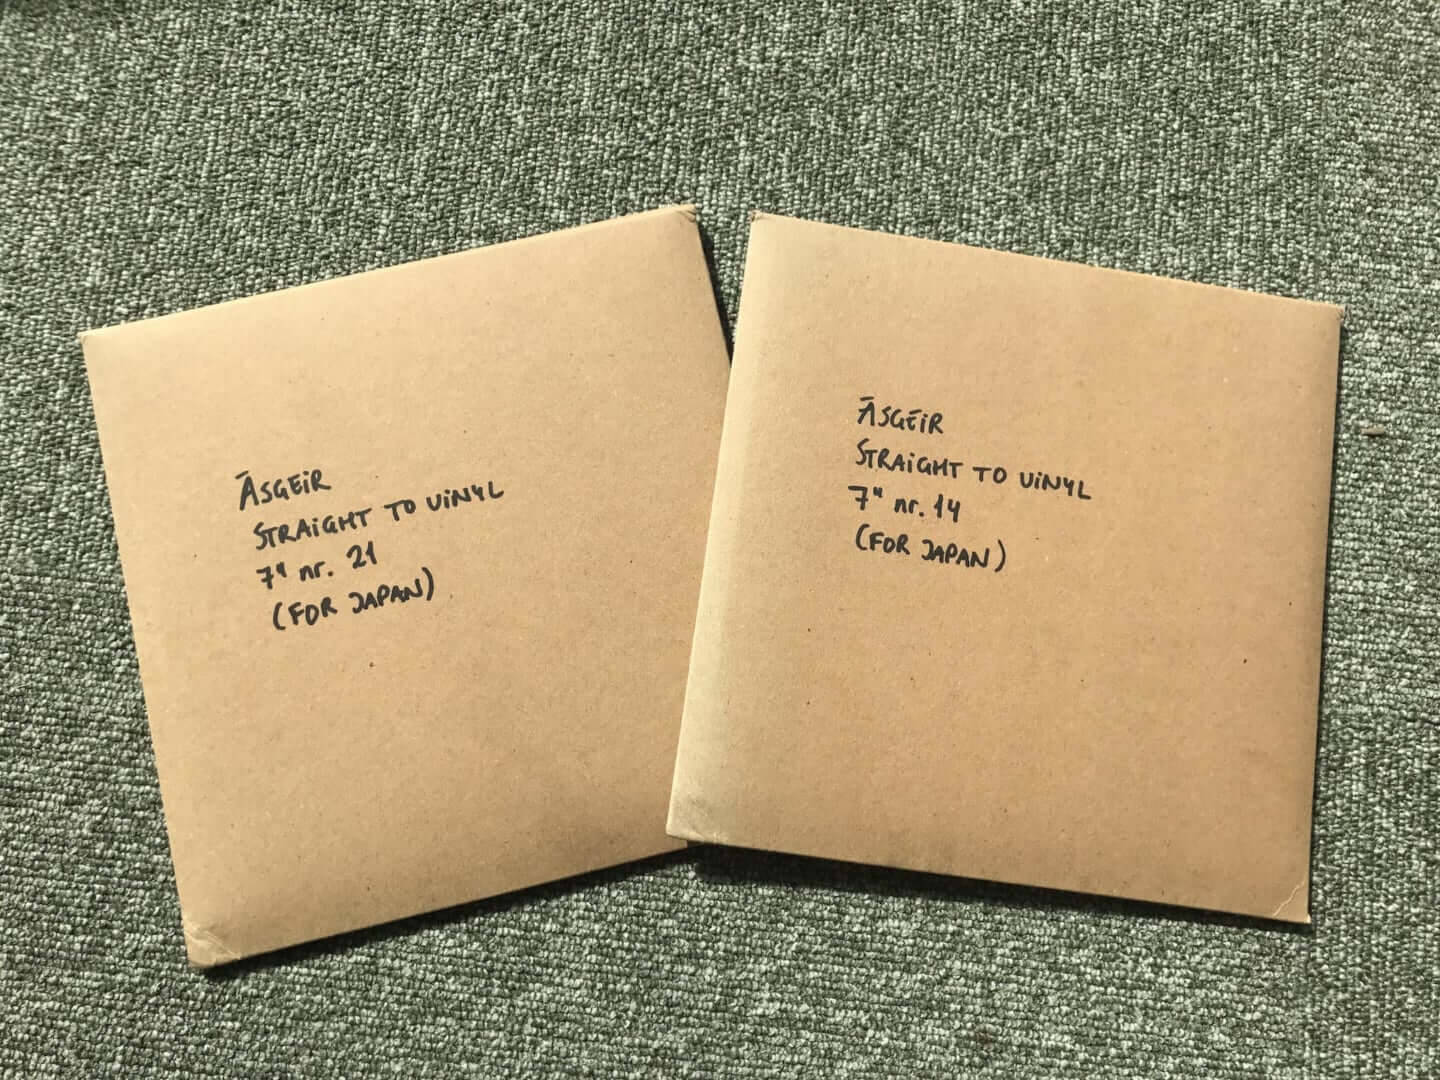 ĀSGEiR
STRAiGHT TO ViNYL
7" nr. 21
(FOR JAPAN)
ĀSGEiR
STRAiGHT TO ViNYL
7" nr. 14
(FOR JAPAN)